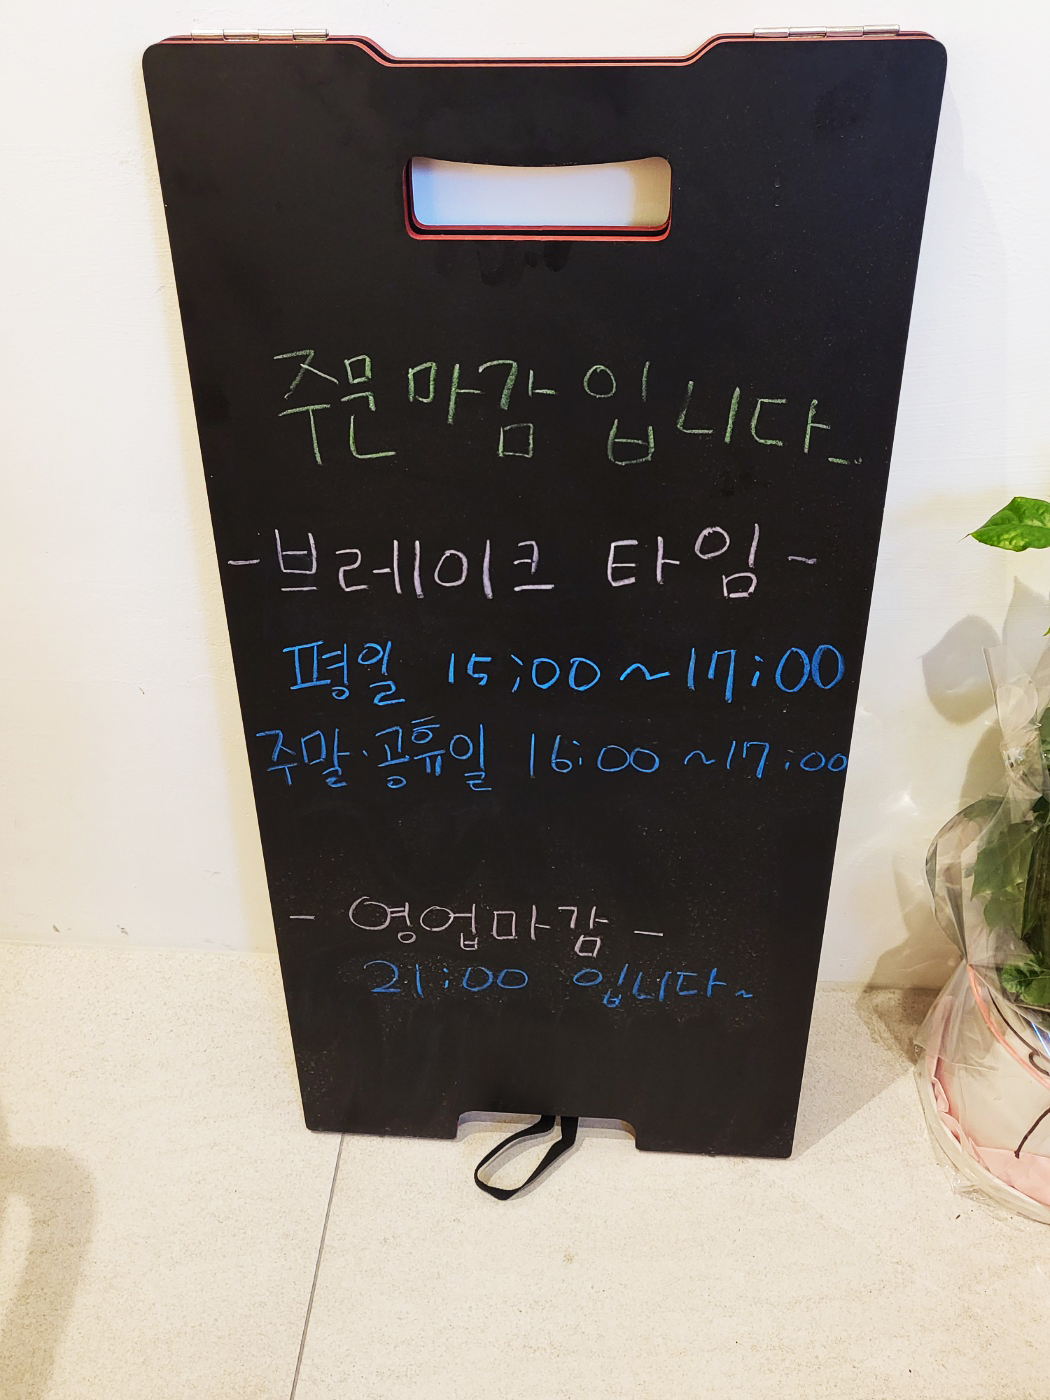 주문마감입니다.
-브레이크 타임-
평일 15:00~17:00
주말·공휴일 16:00~17:00
- 영업마감 -
21:00 입니다~